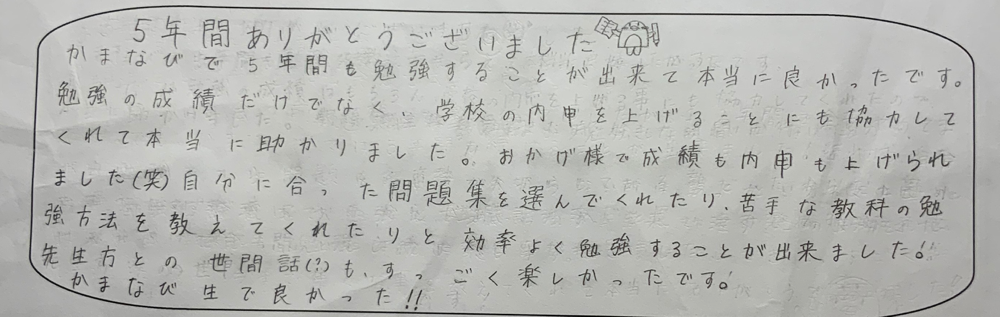 5年間ありがとうございました
かまなびで5年間も勉強することが出来て本当に良かったです。
勉強の成績だけでなく、学校の内申を上げることにも協力して
くれて本当に助かりました。おかげ様で成績も内申も上げられ
ました(笑)自分に合った問題集を選んでくれたり、苦手な教科の勉
強方法を教えてくれたりと効率よく勉強することが出来ました!
先生方との世間話(?)も、すっごく楽しかったです!
かまなび生で良かった!!